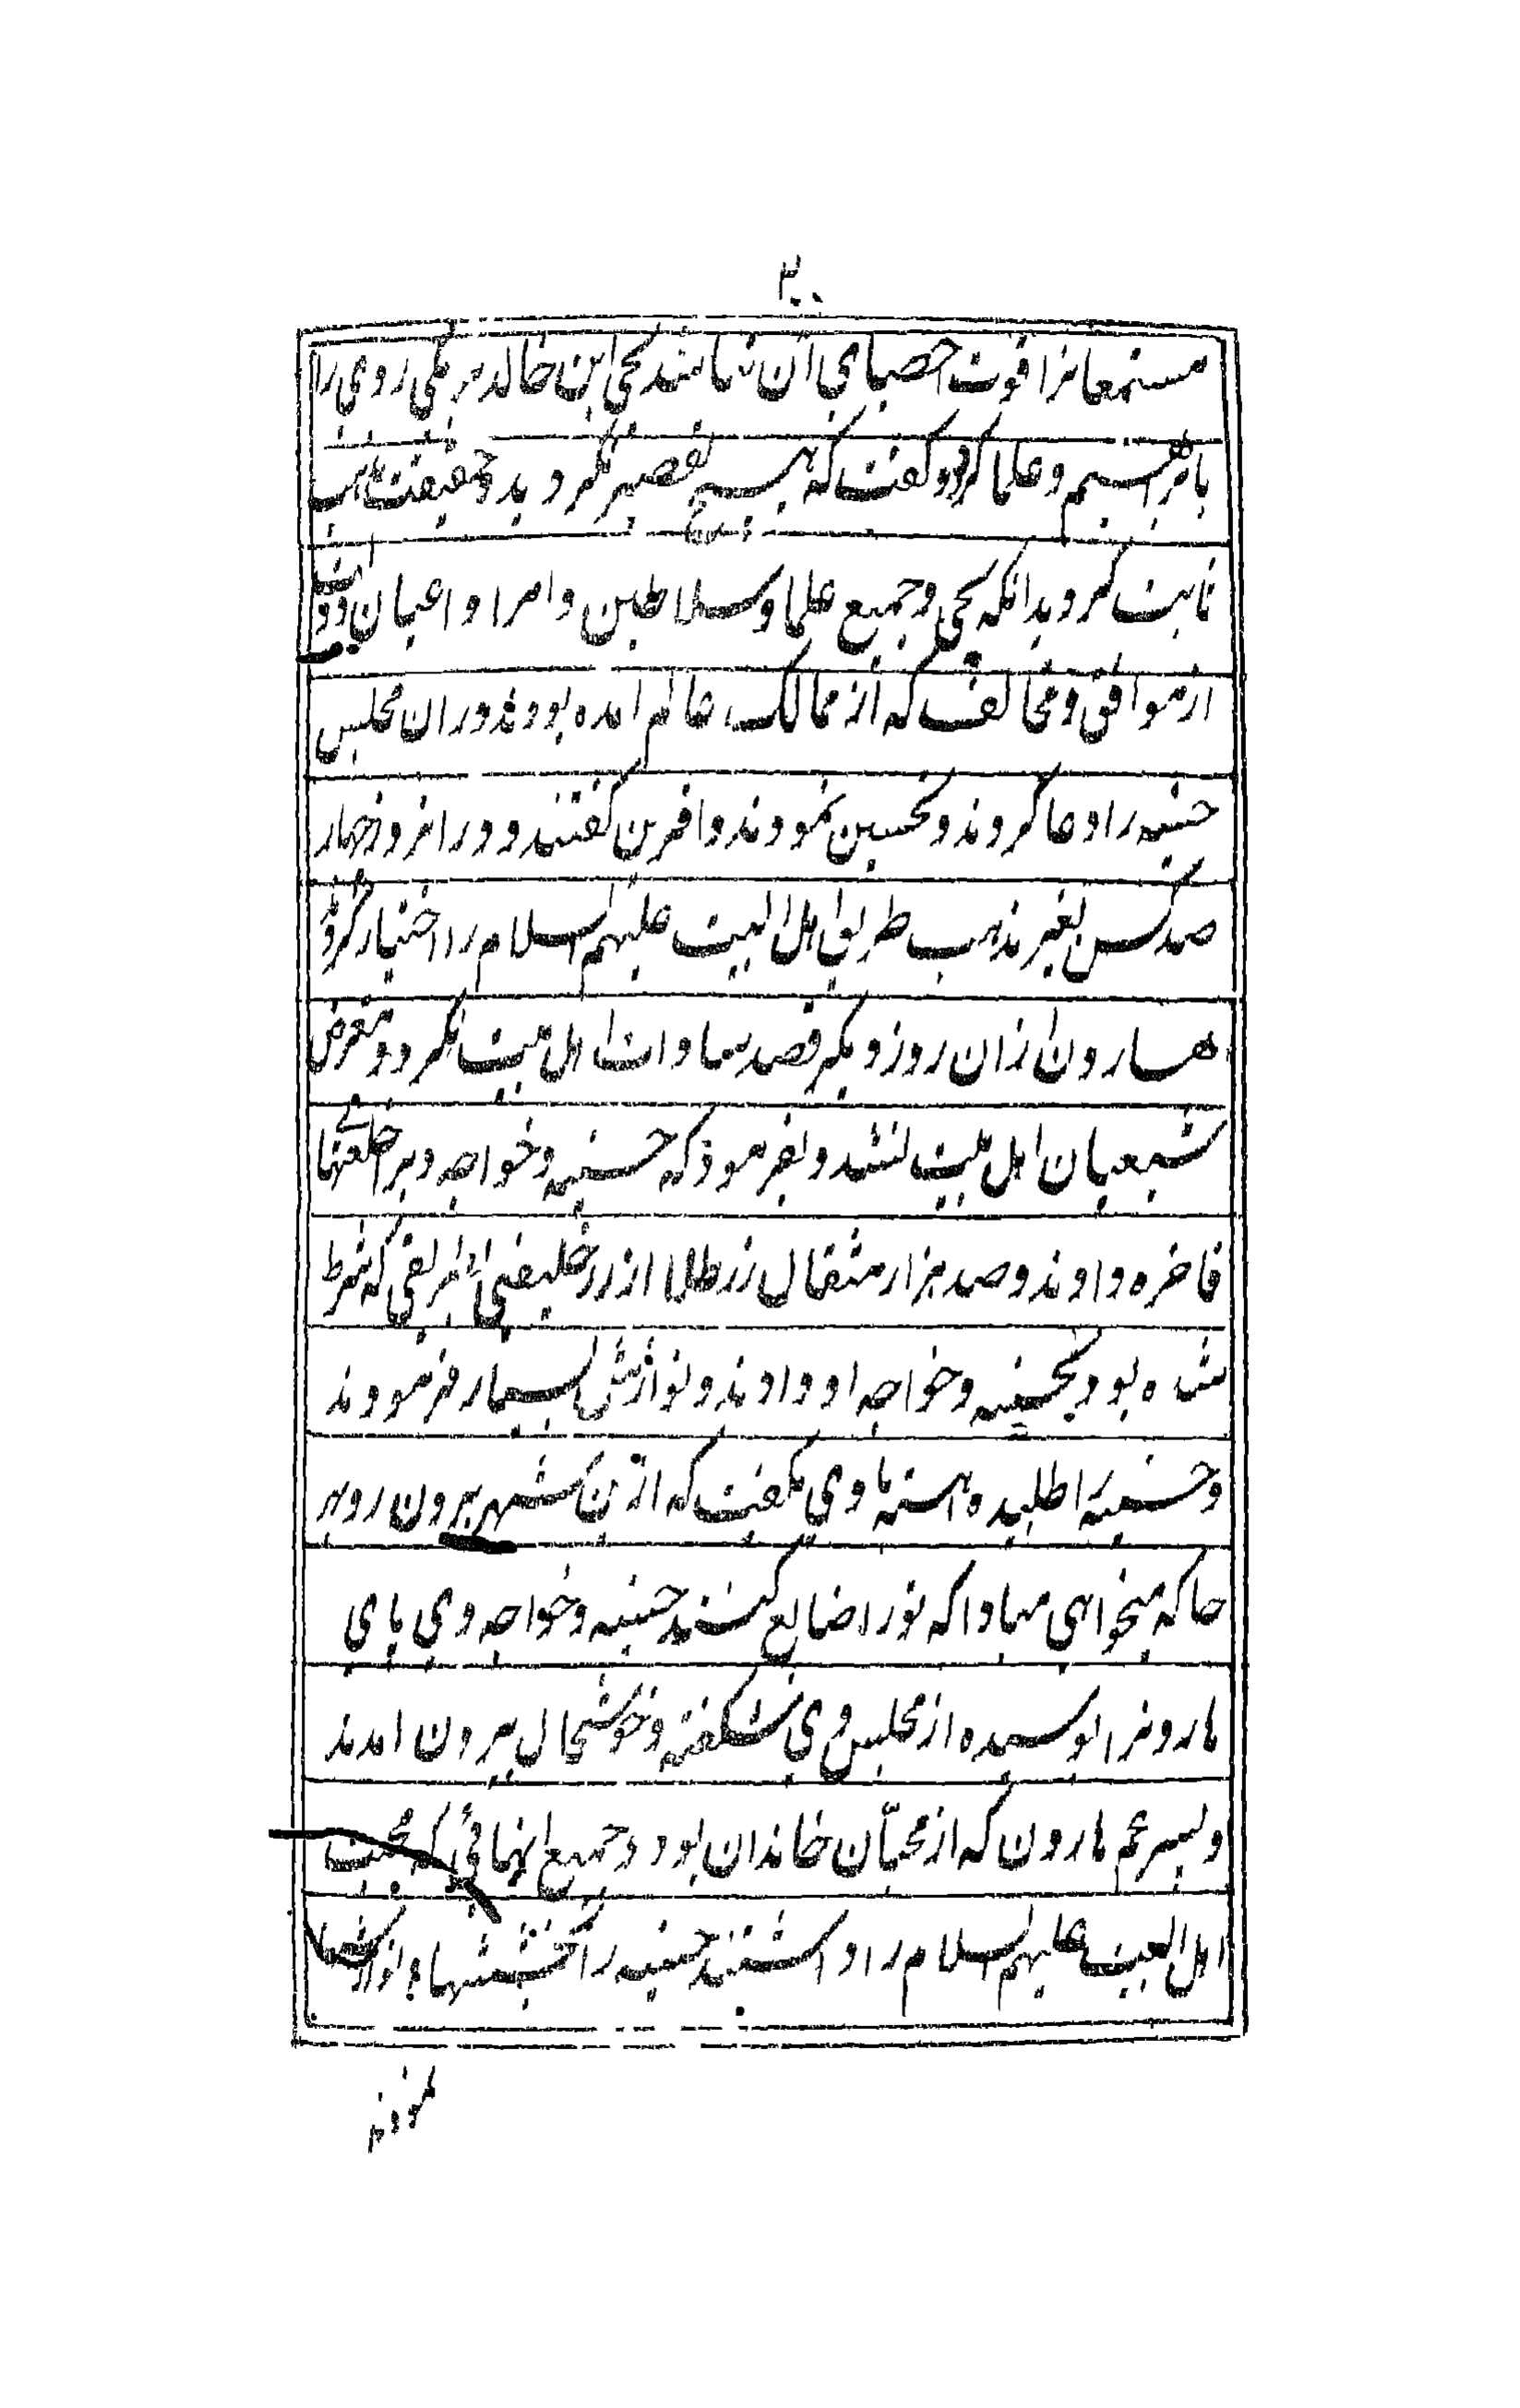 ۲۰۰
مستمعانرا قوت احصای آن نماند یحی ابن خالد برمکی روی را
بابراهیم و علما کرد و گفت که هیچ تقصیر نکردید و حقیقت مذهب
ثابت کردید انکه یحی و جمیع علما و سلاطین و امرا و اعیان دولت
از موافق و مخالف که از ممالک عالم امده بودند در ان مجلس
حسنیه را دعا کردند و تحسین نمودند و افرین گفتند و در انروز چهار
صد کس تغیر مذهب طریق اهل البیت علیهم السلام را اختیار کردند
هارون از ان روز دیگر قصد سادات اهل بیت نکرد و متعرض
شیعیان اهل بیت نشد و بفرمود که حسنیه و خواجه ویرا خلعتهای
فاخره دادند و صد هزار مثقال زر طلا از زر خلیفی که شرط
شده بود بحسنیه و خواجه او دادند و نوازش بسیار فرمودند
و حسنیه را طلبیده اهسته با وی بگفت که ازین شهر بیرون رو بهر
جا که میخواهی مبادا که تو را ضایع کنند حسنیه و خواجه وی پای
هارونرا بوسیده از مجلس وی شکفته و خوشحال بیرون امدند
و پسر عم هارون که از محبّان خاندان بود و جمیع انهائی که محبت
اهل البیت علیهم السلام را داشتند حسنیه را بخششها و نوازشها
نمودند